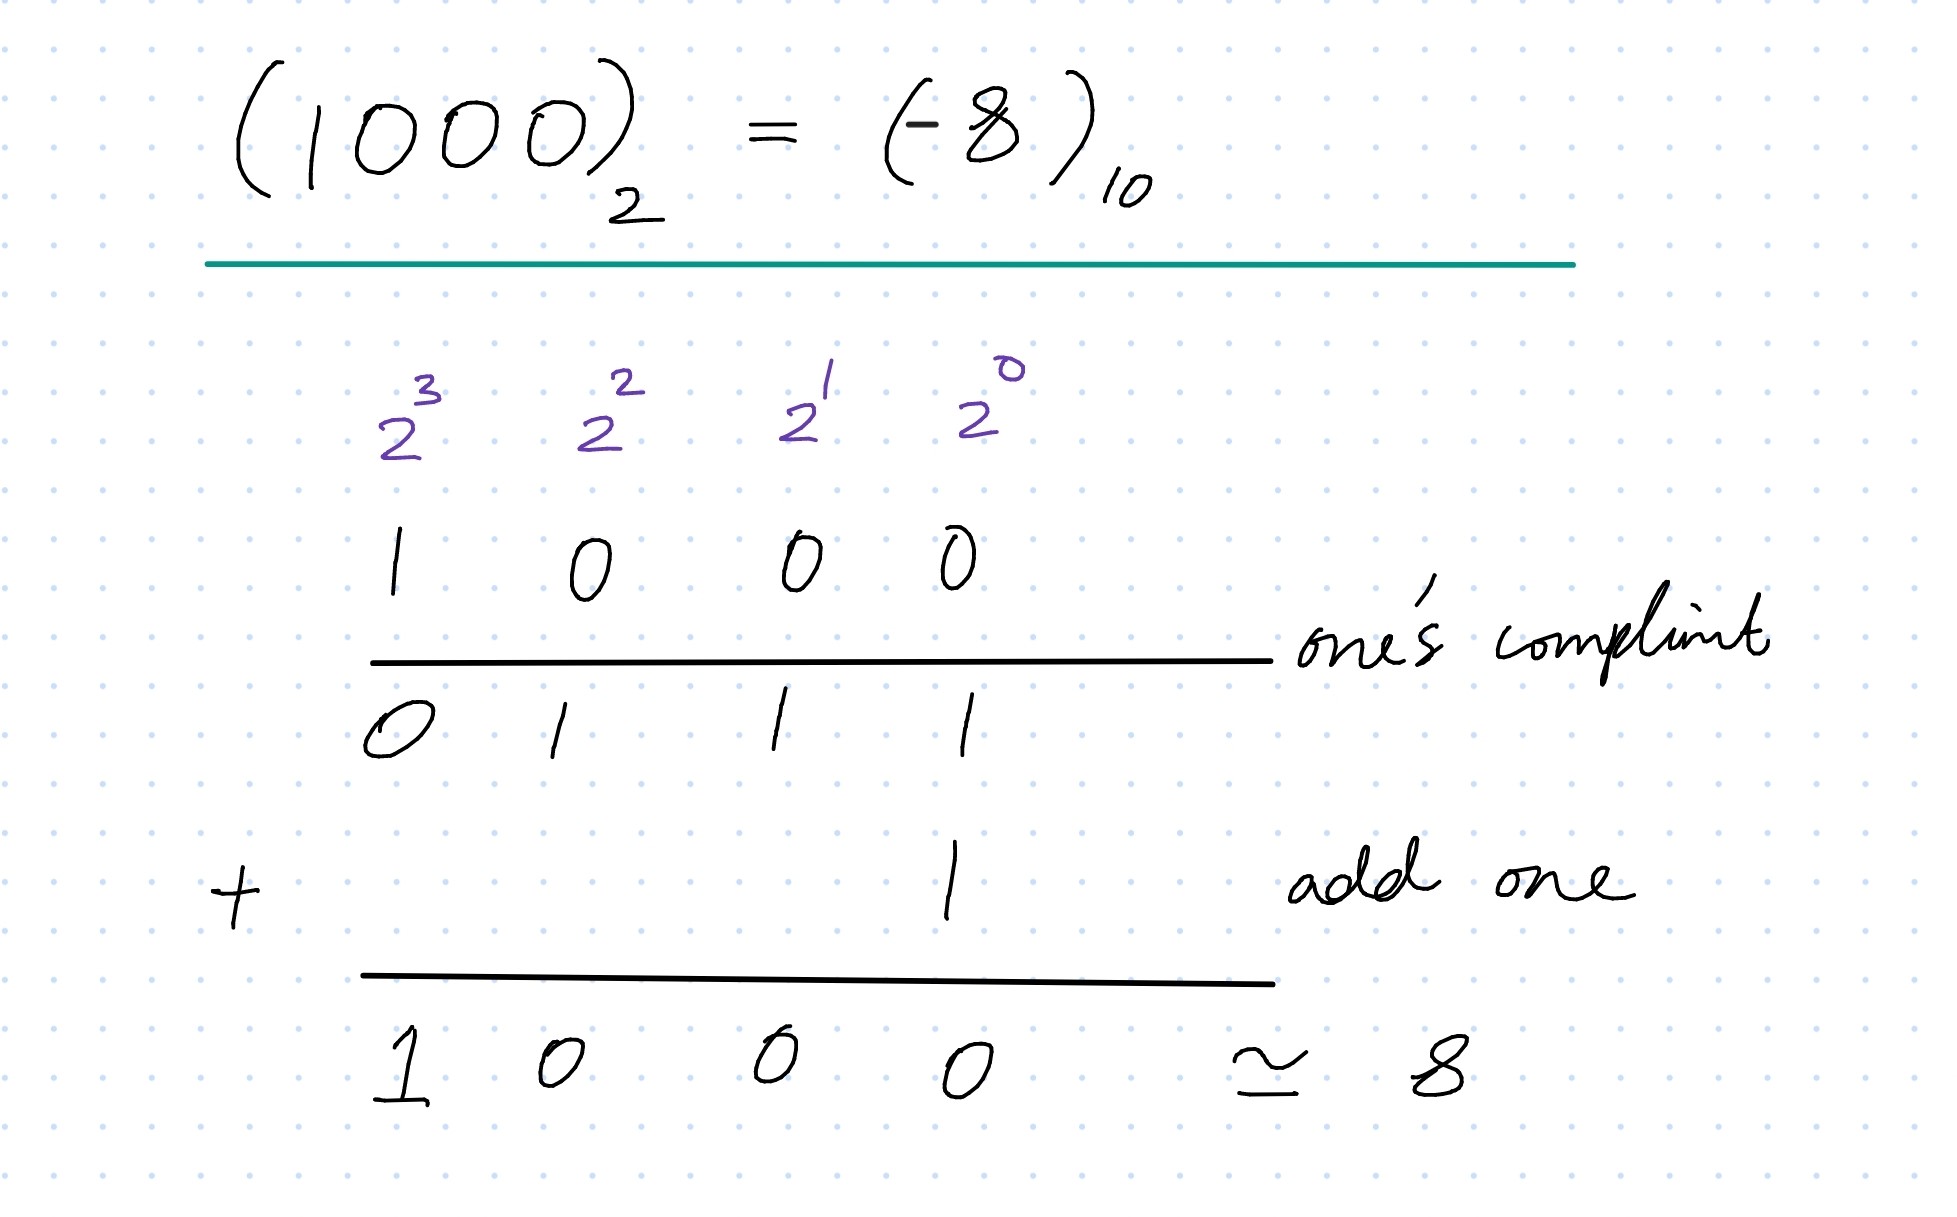 (1000)₂ = (-8)₁₀
2³ 2² 2¹ 2⁰
1 0 0 0
one's complimt
0 1 1 1
+ 1 add one
1 0 0 0 ≃ 8